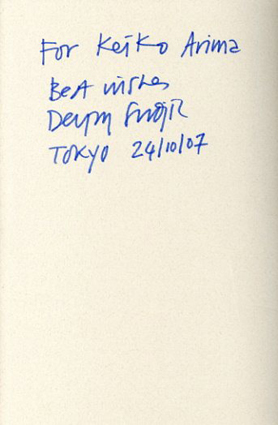 For Keiko Arima
Best wishes
TOKYO 24/10/07